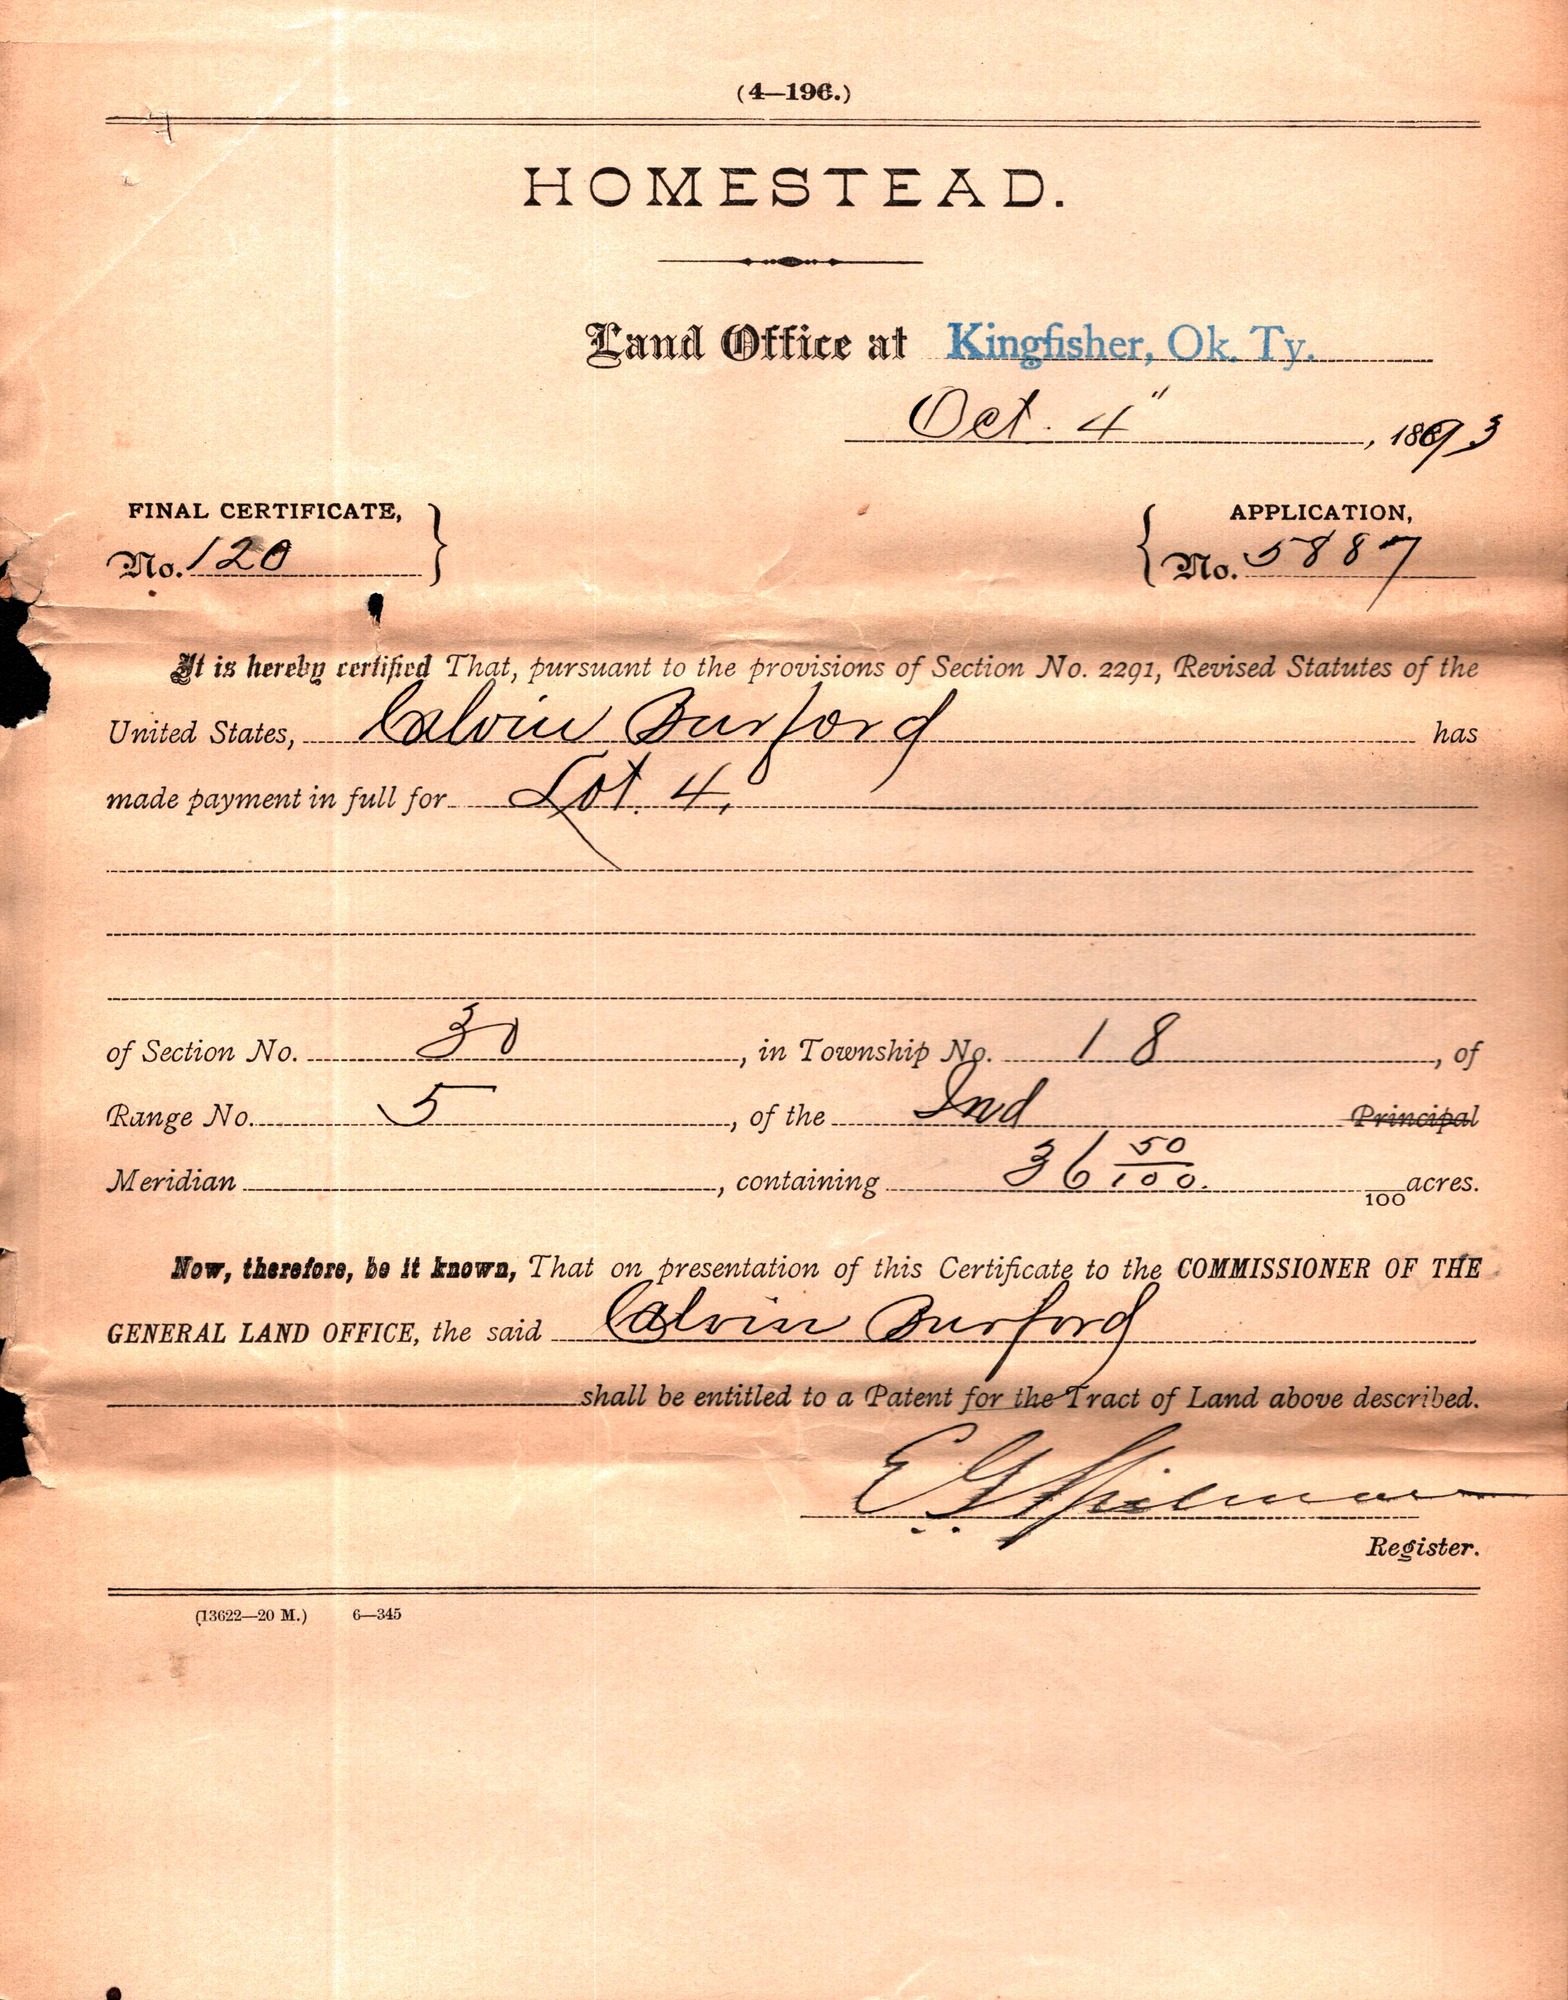 (4—196.)
HOMESTEAD.
Land Office at Kingfisher, Ok. Ty.
Oct. 4", 1893
FINAL CERTIFICATE, } { APPLICATION,
No. 120 No. 5887
It is hereby certified That, pursuant to the provisions of Section No. 2291, Revised Statutes of the
United States, Calvin Burford has
made payment in full for Lot. 4,
of Section No. 30, in Township No. 18, of
Range No. 5, of the Ind Principal
Meridian, containing 36 50/100. /100 acres.
Now, therefore, be it known, That on presentation of this Certificate to the COMMISSIONER OF THE
GENERAL LAND OFFICE, the said Calvin Burford
shall be entitled to a Patent for the Tract of Land above described.
E G Spilman
Register.
(13622—20 M.) 6—345